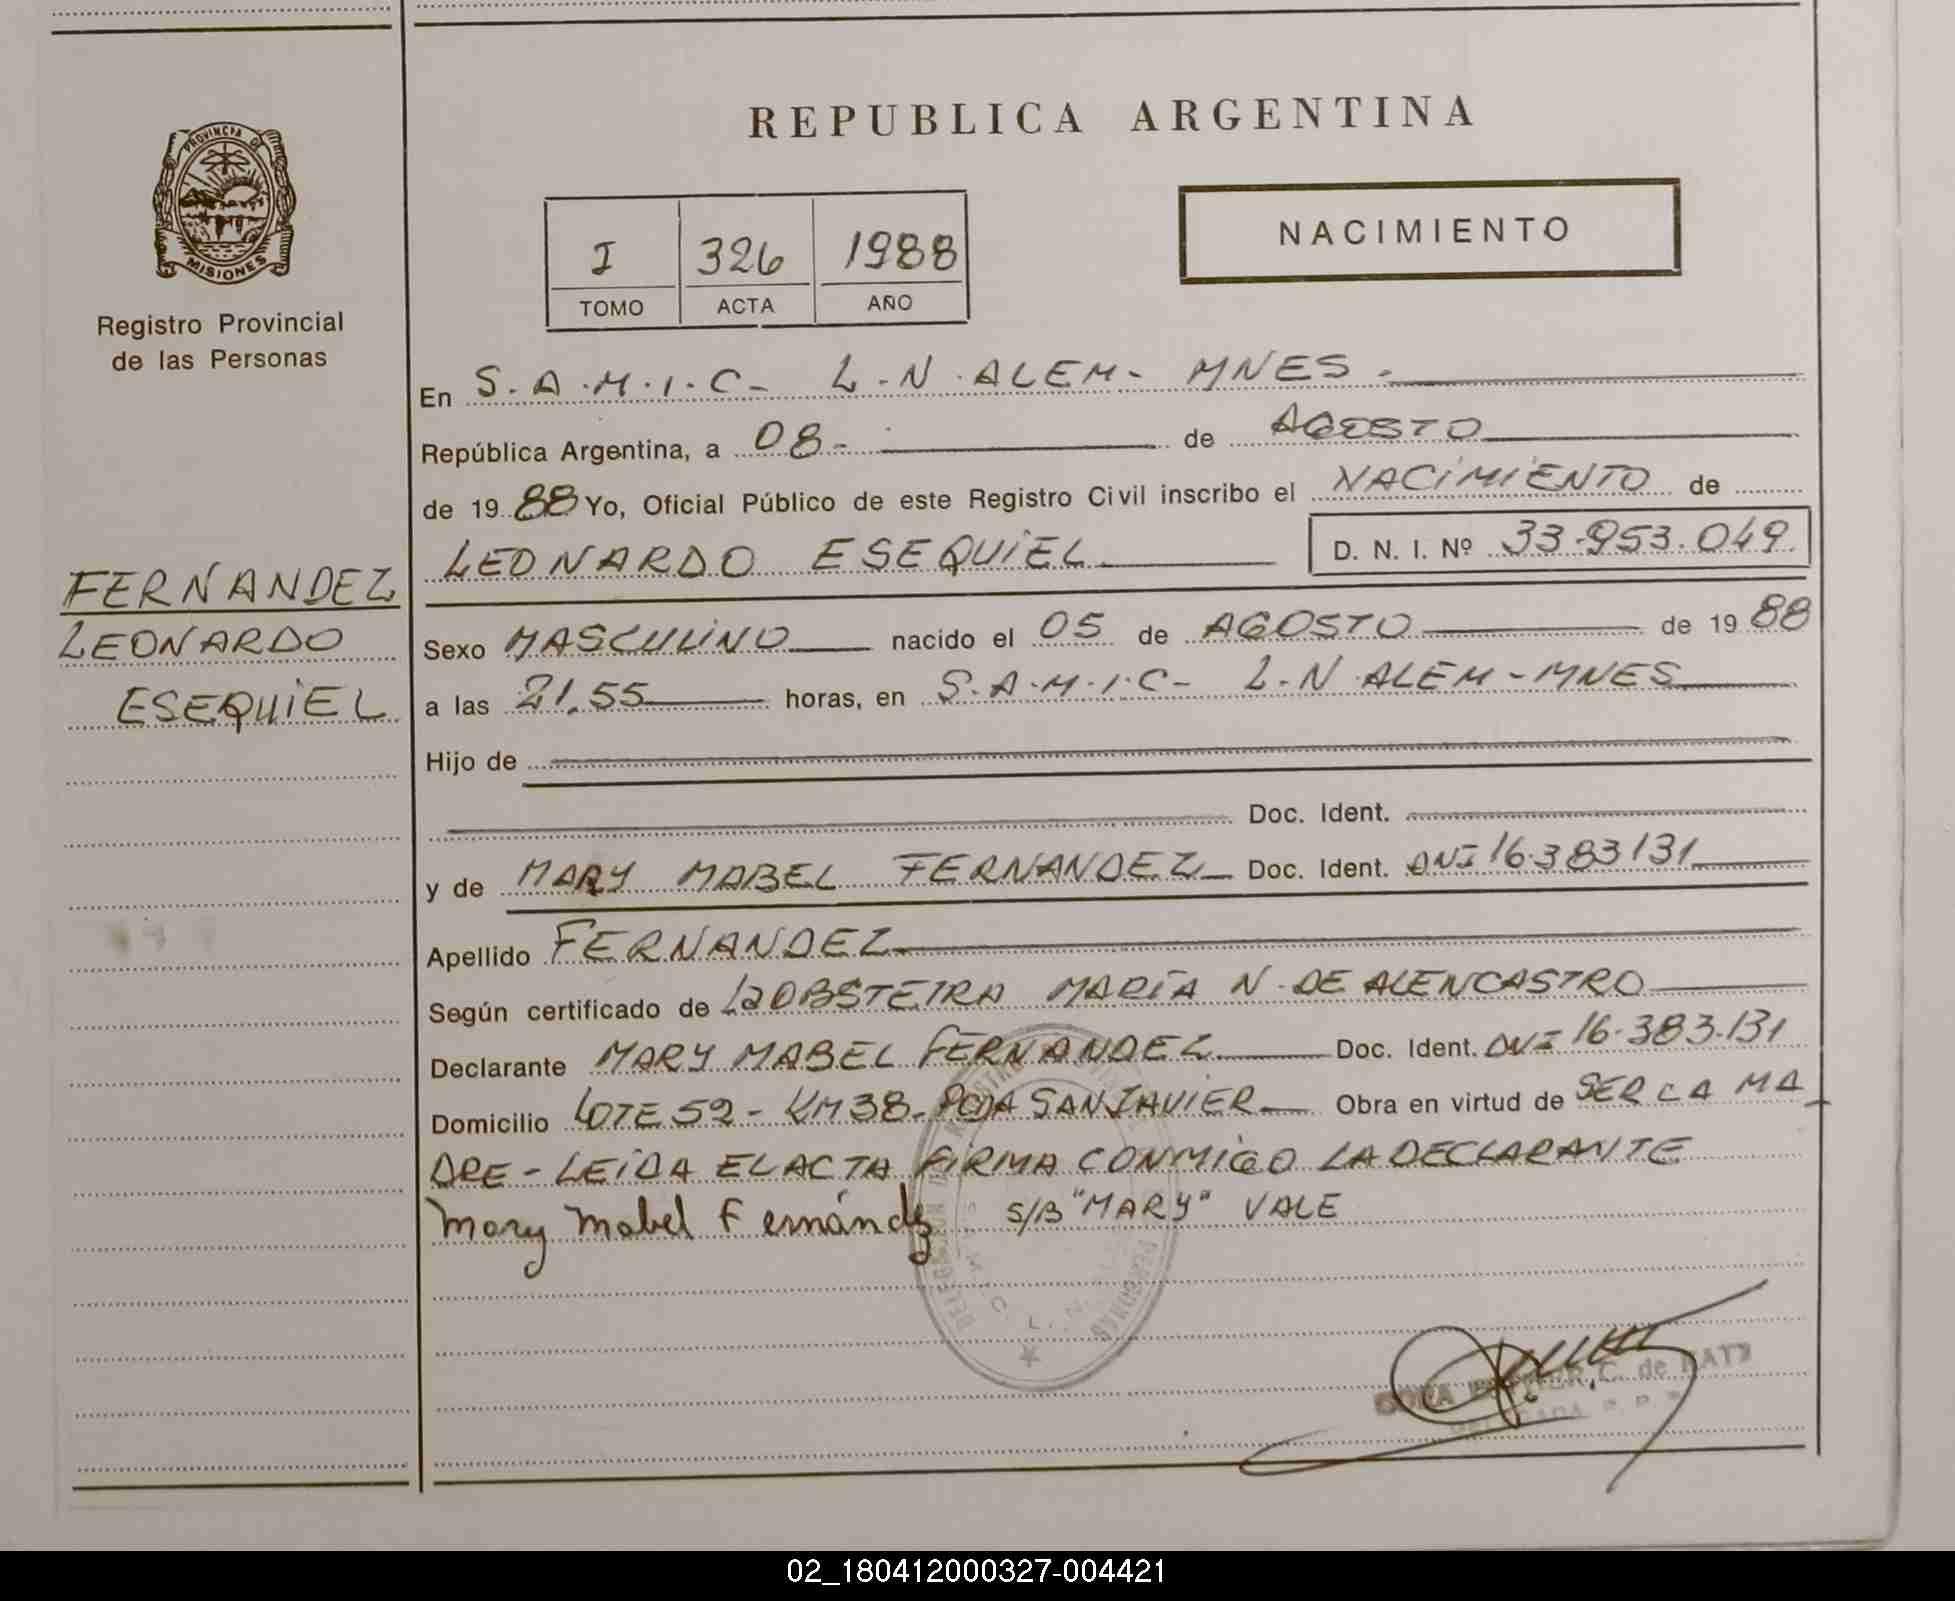 PROVINCIA DE
MISIONES
Registro Provincial
de las Personas
FERNANDEZ
LEONARDO
ESEQUIEL
REPUBLICA ARGENTINA
I 326 1988
TOMO ACTA AÑO
NACIMIENTO
En S.A.M.I.C- L.N.ALEM- MNES.
República Argentina, a 08- de AGOSTO
de 1988 Yo, Oficial Público de este Registro Civil inscribo el NACIMIENTO de
LEONARDO ESEQUIEL D. N. I. Nº 33.953.049.
Sexo MASCULINO nacido el 05 de AGOSTO de 1988
a las 21.55 horas, en S.A.M.I.C- L.N.ALEM-MNES
Hijo de
Doc. Ident.
y de MARY MABEL FERNANDEZ Doc. Ident. DNI 16.383131
Apellido FERNANDEZ
Según certificado de LA OBSTETRA MARÍA N. DE ALENCASTRO
Declarante MARY MABEL FERNANDEZ Doc. Ident. DNI 16.383.131
Domicilio LOTE 52- KM 38- PCIA SAN JAVIER Obra en virtud de SER LA MA
DRE - LEIDA EL ACTA FIRMA CONMIGO LA DECLARANTE
Mary Mabel Fernández S/B "MARY" VALE
C. de KATZ
02_180412000327-004421